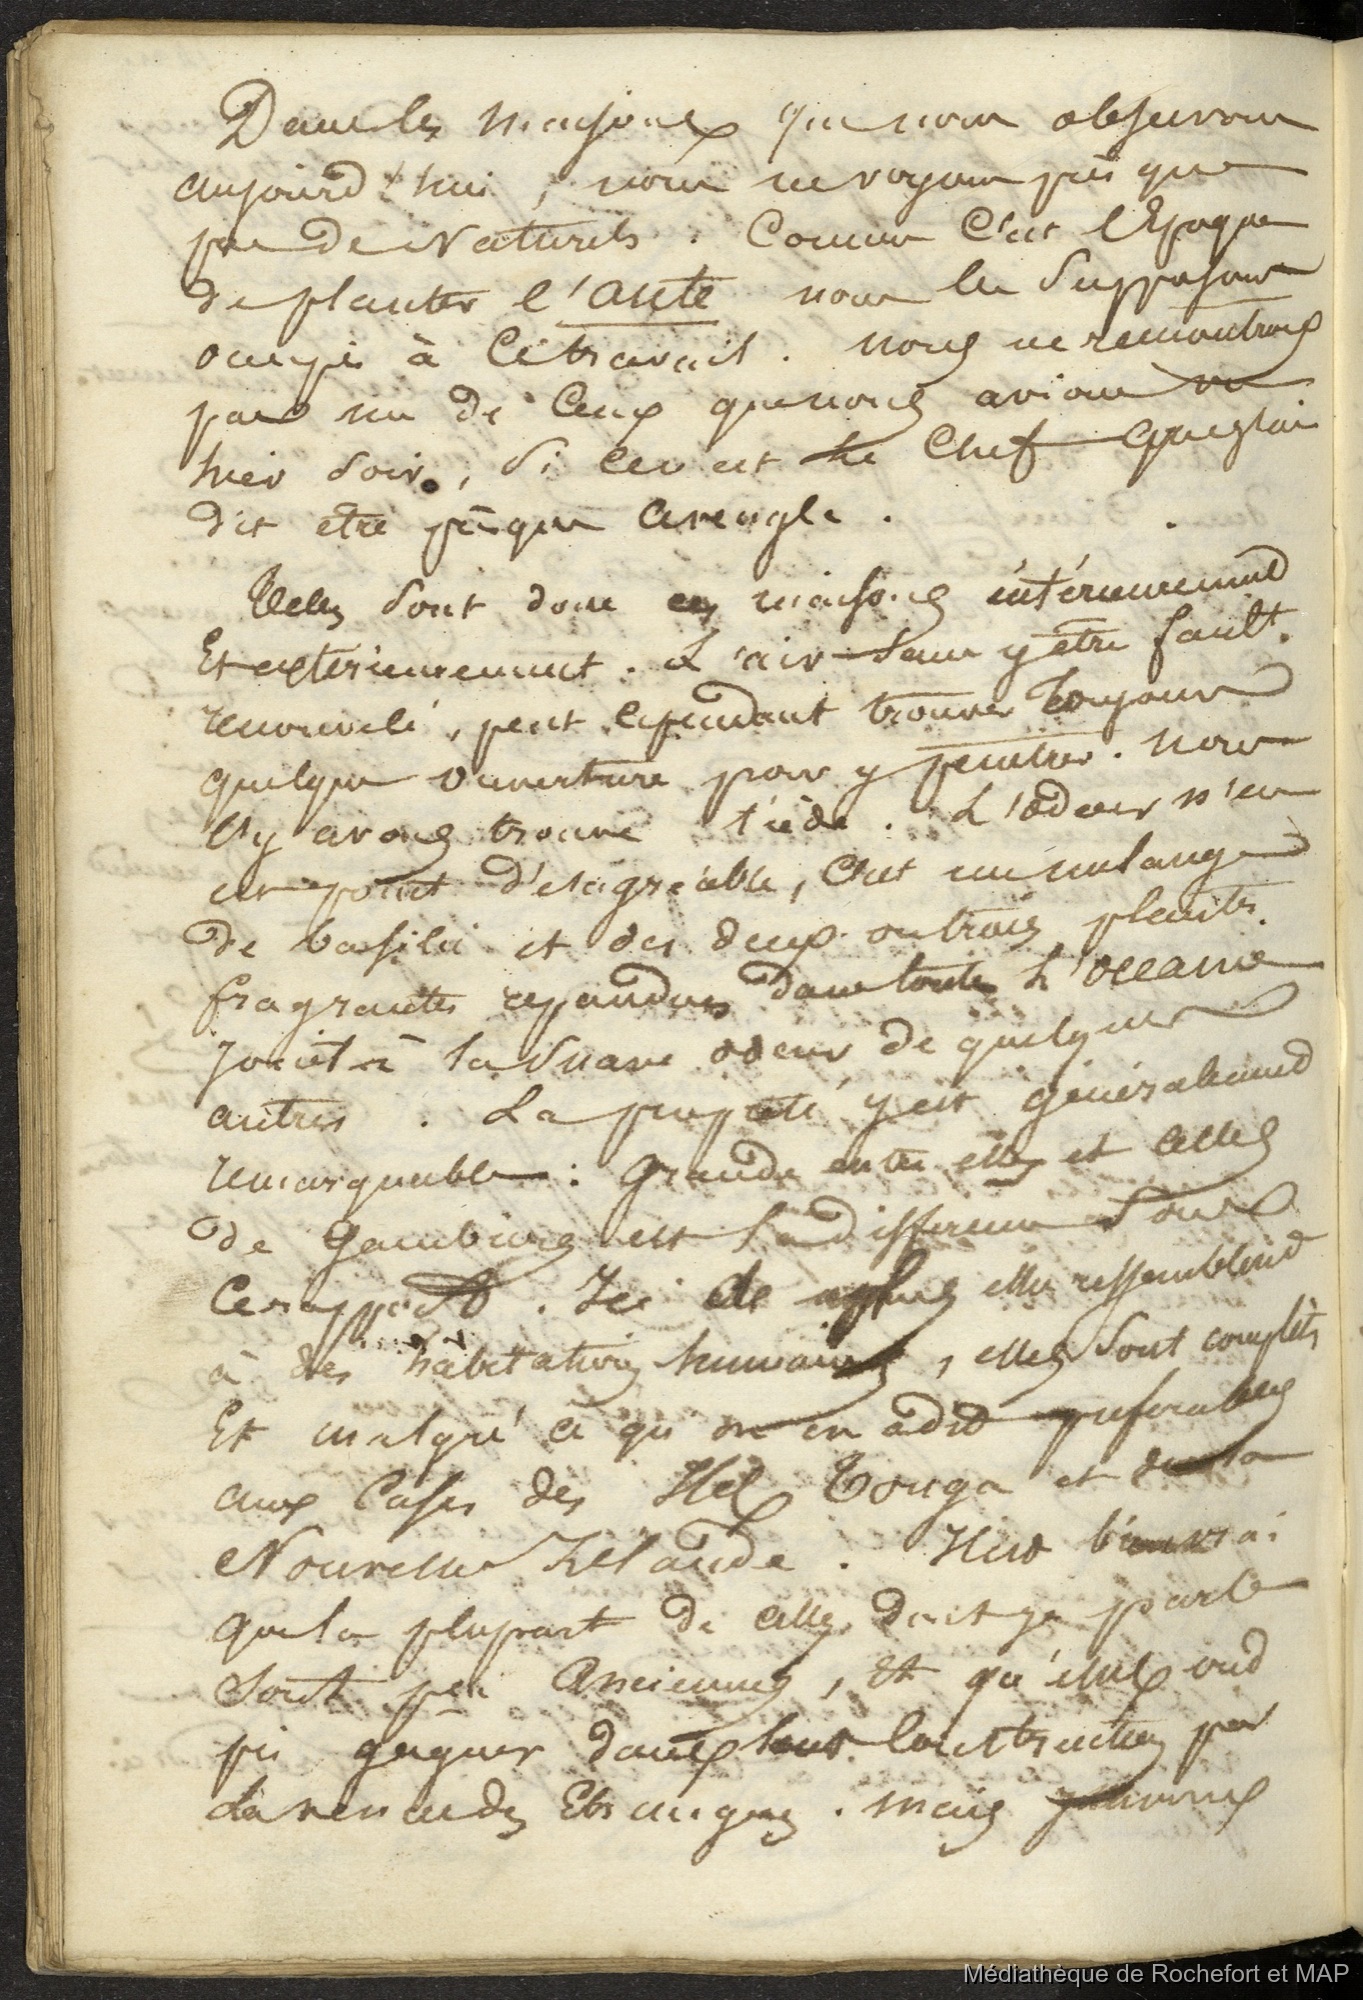 Dans les maisons que nous observons
aujourd'hui, nous ne voyons pas que
peu de Naturels. Comme c'est l'Epoque
de planter l'auté nous les supposons
occupés à ce travail. nous ne rencontrons
pas un de ceux que nous avions vu
hier soir, si ce n'est le chef qu'on
dit etre presque aveugle.
Telles sont donc ces maisons intérieurement
Et extérieurement. L'air sans y être
renouvelé, peut cependant trouver toujours
quelque ouverture pour y pénétrer. nous
l'y avons trouvé tiède. L'odeur n'en
est point désagréable, c'est un melange
de basilic et des deux ou trois plantes
fragrantes repandues dans toute l'océanie
joint à la suave odeur de quelques
autres. La propreté y est généralement
remarquable: grande entre elles et celles
de Gambier est la différence sous
ce rapport. Ici elles ressemblent
à des habitations humaines, elles sont complètes
Et malgré ce qu'on en a dit préférables
aux cases des Tonga et de la
Nouvelle Zélande. Il est bien vrai
que la plupart de celles dont je parle
sont peu anciennes, et qu'elles ont
pu gagner dans leur construction par
la venue des Etrangers. mais
Médiathèque de Rochefort et MAP